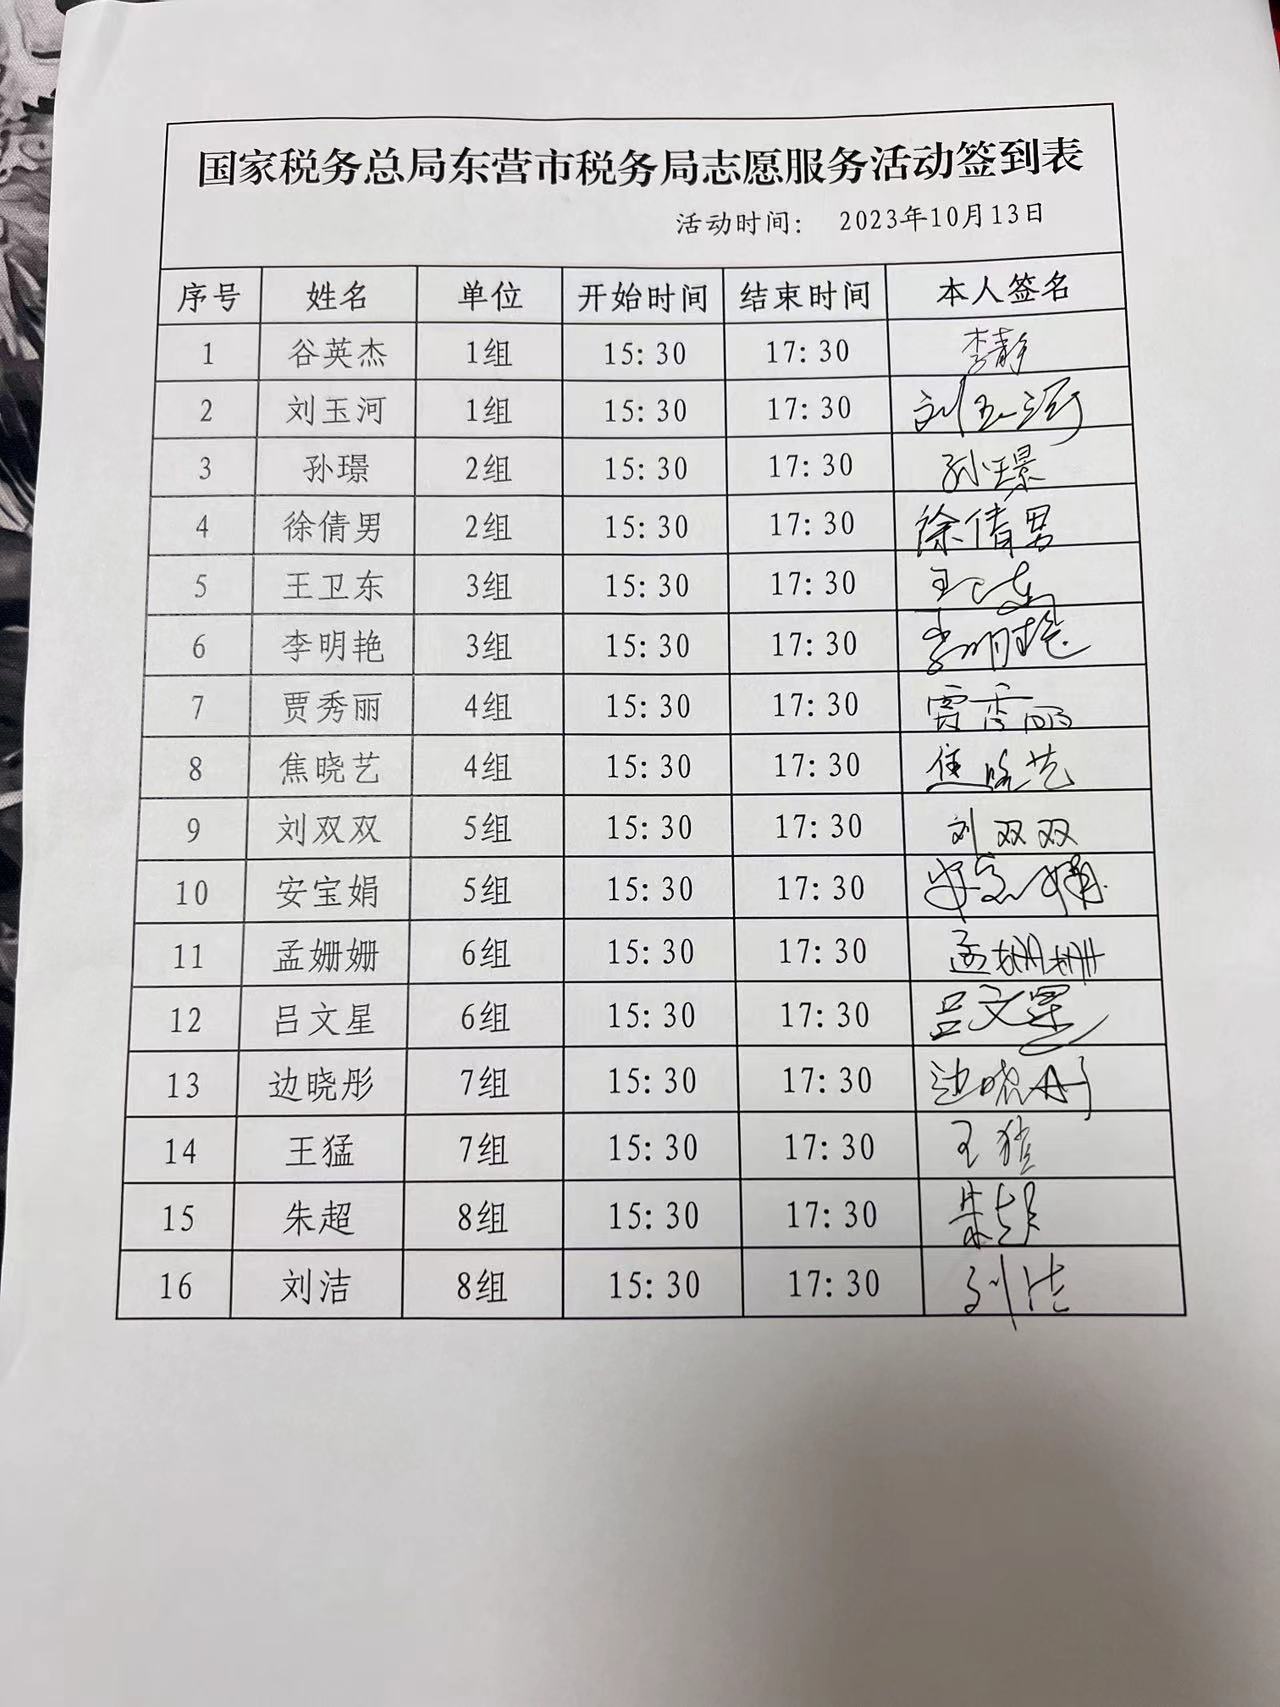 国家税务总局东营市税务局志愿服务活动签到表
活动时间： 2023年10月13日
序号 姓名 单位 开始时间 结束时间 本人签名
1 谷英杰 1组 15:30 17:30 李静
2 刘玉河 1组 15:30 17:30 刘玉河
3 孙璟 2组 15:30 17:30 孙璟
4 徐倩男 2组 15:30 17:30 徐倩男
5 王卫东 3组 15:30 17:30 王卫东
6 李明艳 3组 15:30 17:30 李明艳
7 贾秀丽 4组 15:30 17:30 贾秀丽
8 焦晓艺 4组 15:30 17:30 焦晓艺
9 刘双双 5组 15:30 17:30 刘双双
10 安宝娟 5组 15:30 17:30 安宝娟
11 孟姗姗 6组 15:30 17:30 孟姗姗
12 吕文星 6组 15:30 17:30 吕文星
13 边晓彤 7组 15:30 17:30 边晓彤
14 王猛 7组 15:30 17:30 王猛
15 朱超 8组 15:30 17:30 朱超
16 刘洁 8组 15:30 17:30 刘洁